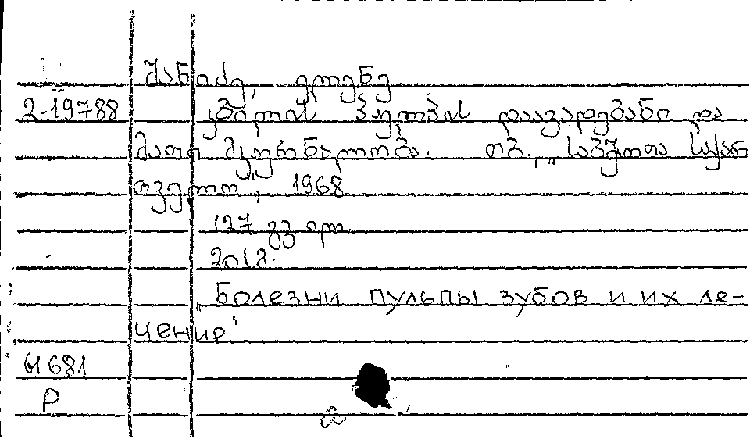 შანიძე,
2-19788 კბილის პულპის დაავადებანი და
მათი მკურნალობა. თბ., „საბჭოთა საქარ
თველო", 1968
127 გვ
„Болезни пульпы зубов и их ле-
чение"
681
P